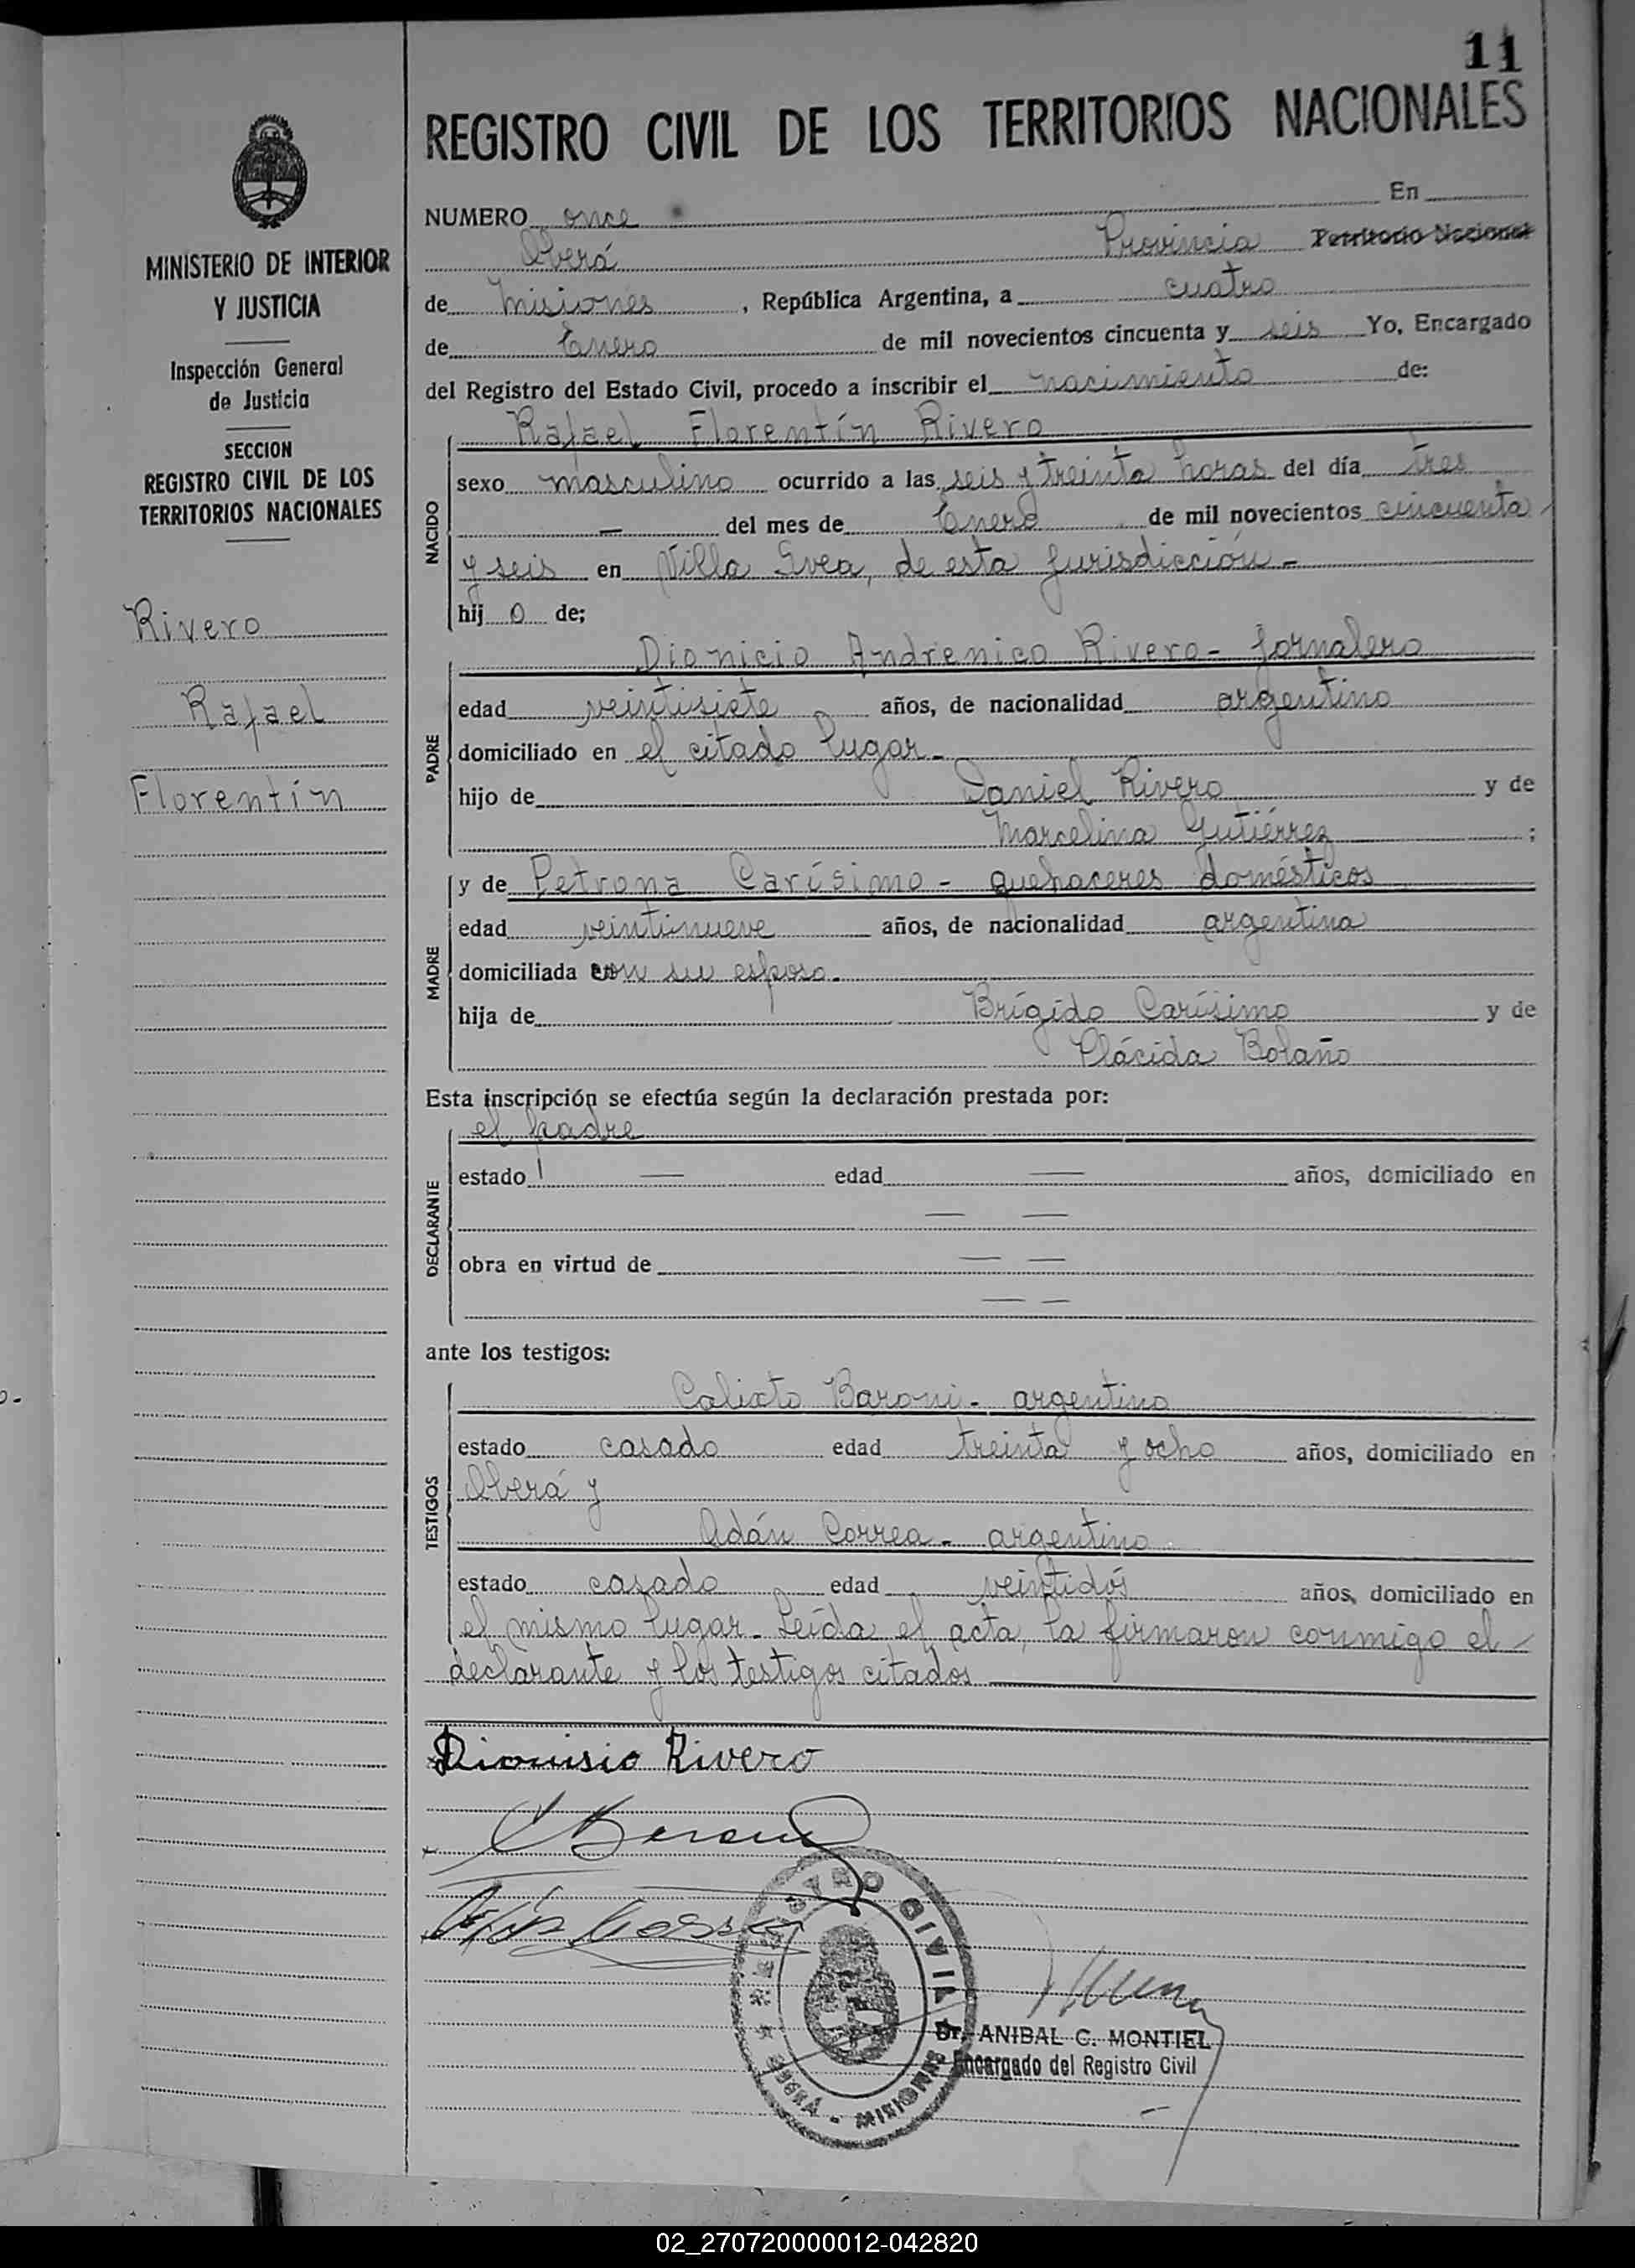 11
REGISTRO CIVIL DE LOS TERRITORIOS NACIONALES
MINISTERIO DE INTERIOR
Y JUSTICIA
Inspección General
de Justicia
SECCION
REGISTRO CIVIL DE LOS
TERRITORIOS NACIONALES
Rivero
Rafael
Florentín
NUMERO once En
Oberá Provincia Territorio Nacional
de Misiones, República Argentina, a cuatro
de Enero de mil novecientos cincuenta y seis Yo, Encargado
del Registro del Estado Civil, procedo a inscribir el nacimiento de:
NACIDO
Rafael Florentín Rivero
sexo masculino ocurrido a las seis y treinta horas del día tres
— del mes de Enero de mil novecientos cincuenta
y seis en Villa Svea, de esta jurisdicción -
hijo de;
PADRE
Dionicio Andrenico Rivero - jornalero
edad veintisiete años, de nacionalidad argentino
domiciliado en el citado lugar -
hijo de Daniel Rivero y de
Marcelina Gutiérrez ;
MADRE
y de Petrona Carísimo - quehaceres domésticos
edad veintinueve años, de nacionalidad argentina
domiciliada con su esposo -
hija de Brígido Carísimo y de
Plácida Bolaño
Esta inscripción se efectúa según la declaración prestada por:
DECLARANTE
el padre
estado — edad — años, domiciliado en
— —
obra en virtud de — —
— —
ante los testigos:
TESTIGOS
Calixto Baroni - argentino
estado casado edad treinta y ocho años, domiciliado en
Oberá y
Adán Correa - argentino
estado casado edad veintidós años, domiciliado en
el mismo lugar - Leída el acta, la firmaron conmigo el
declarante y los testigos citados
Dionisio Rivero
REGISTRO CIVIL
OBERÁ - MISIONES
Dr. ANIBAL C. MONTIEL
Encargado del Registro Civil
02_270720000012-042820